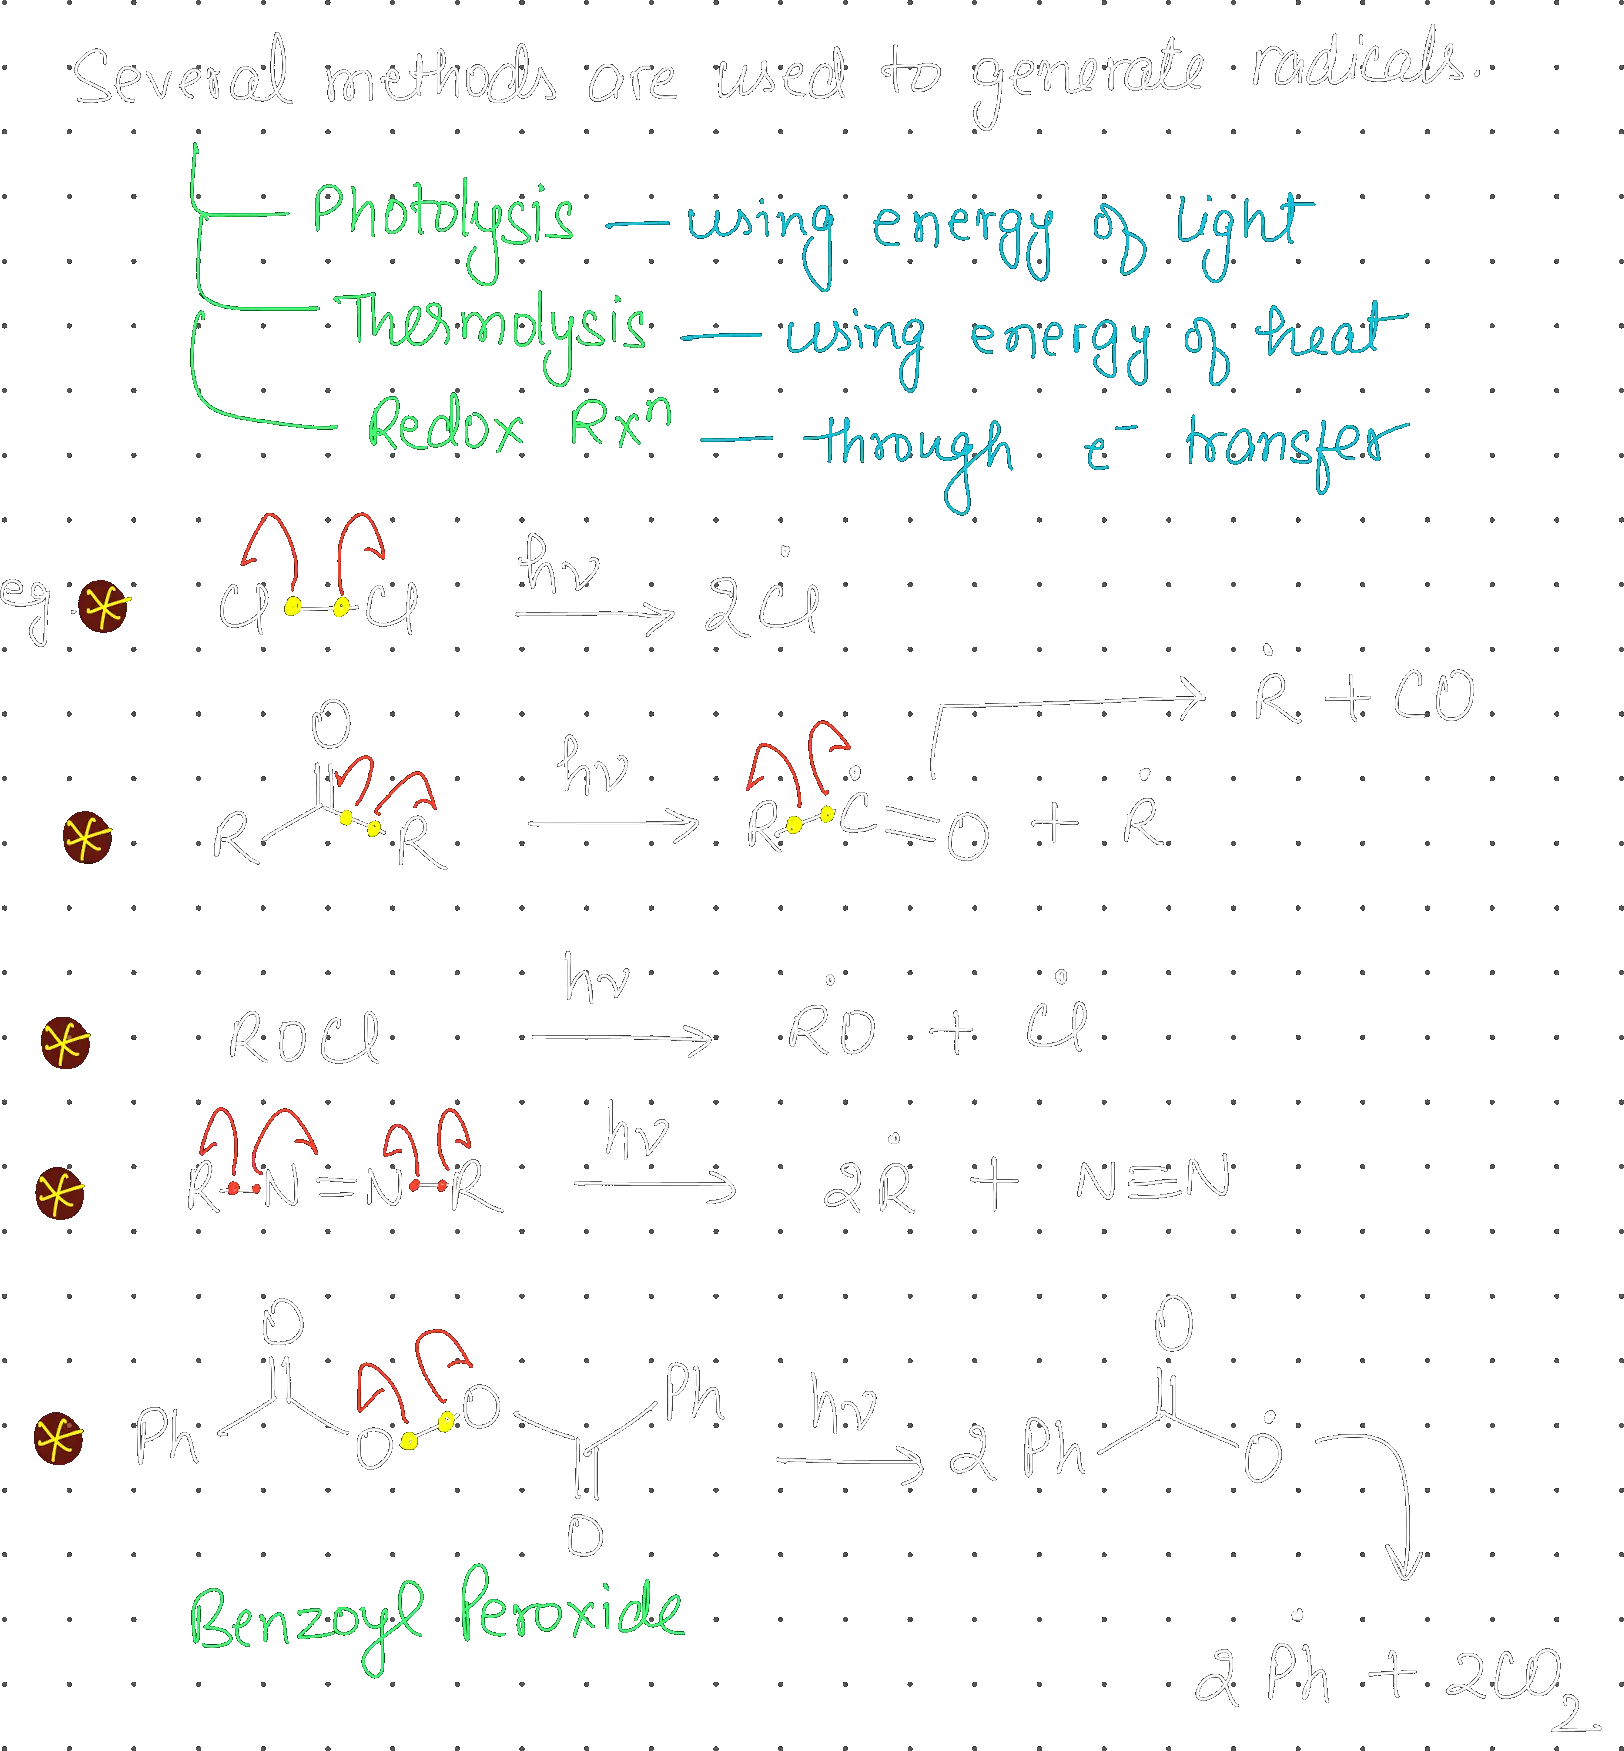 Several methods are used to generate radicals.
Photolysis — using energy of light
Thermolysis — using energy of heat
Redox Rxⁿ — through e⁻ transfer
eg. Cl–Cl hν → 2Ċl
Ṙ + CO
O
R R hν → R–Ċ=O + Ṙ
ROCl hν → RȮ + Ċl
R–N=N–R hν → 2Ṙ + N≡N
O O
Ph O–O Ph hν → 2 Ph Ȯ
O
Benzoyl Peroxide
2 Ṗh + 2CO₂.